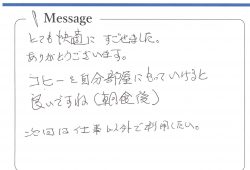 Message
とても快適にすごせました。
ありがとうございます。
コーヒーを自分部屋にもっていけると
良いですね(朝食後)
次回は仕事以外で利用したい。